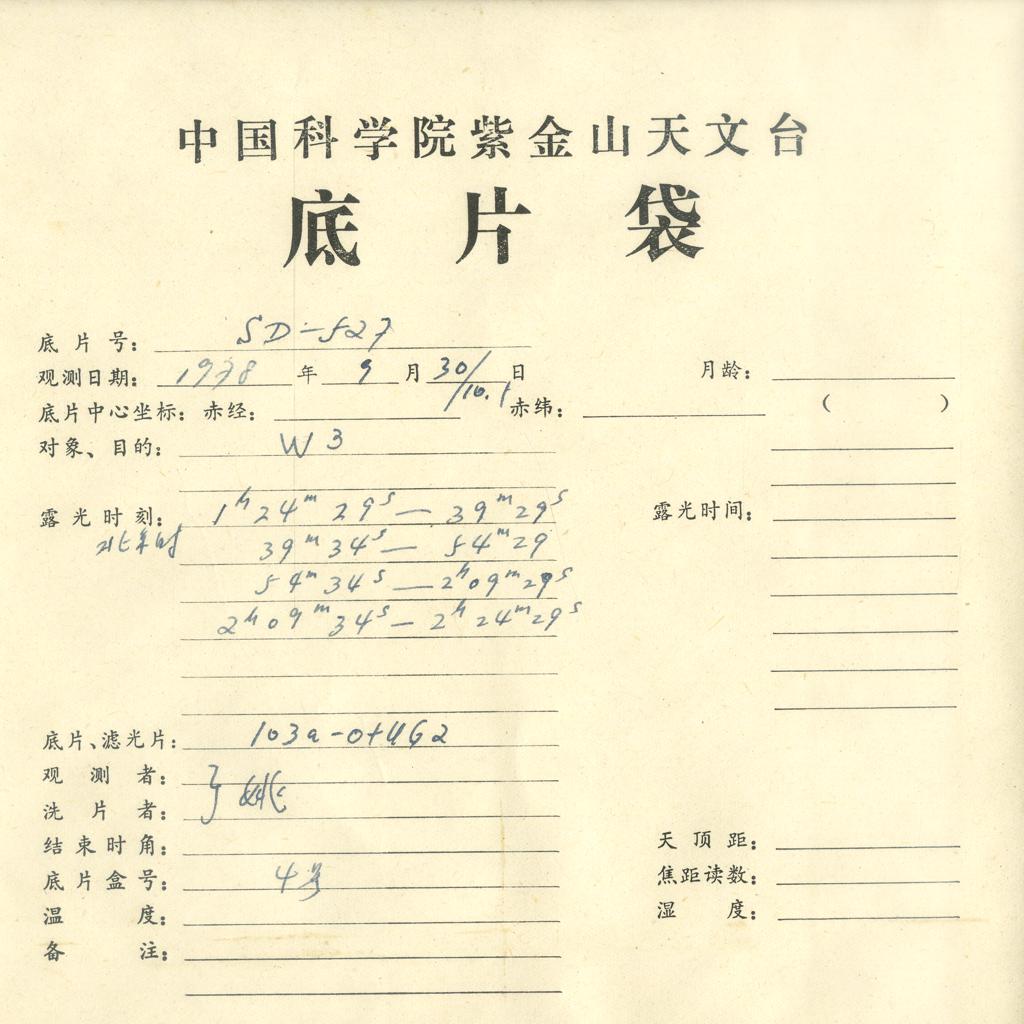 中国科学院紫金山天文台
底片袋
底片号: SD-527
观测日期: 1978 年 9 月 30/10.1 日 月龄:
底片中心坐标: 赤经: 赤纬: ( )
对象、目的: W3
露光时刻: 1h24m29s — 39m29s 露光时间:
北京时 39m34s — 54m29
54m34s — 2h09m29s
2h09m34s — 2h24m29s
底片、滤光片: 103a-O+UG2
观测者: } 姚
洗片者:
结束时角: 天顶距:
底片盒号: 4号 焦距读数:
温度: 湿度:
备注: